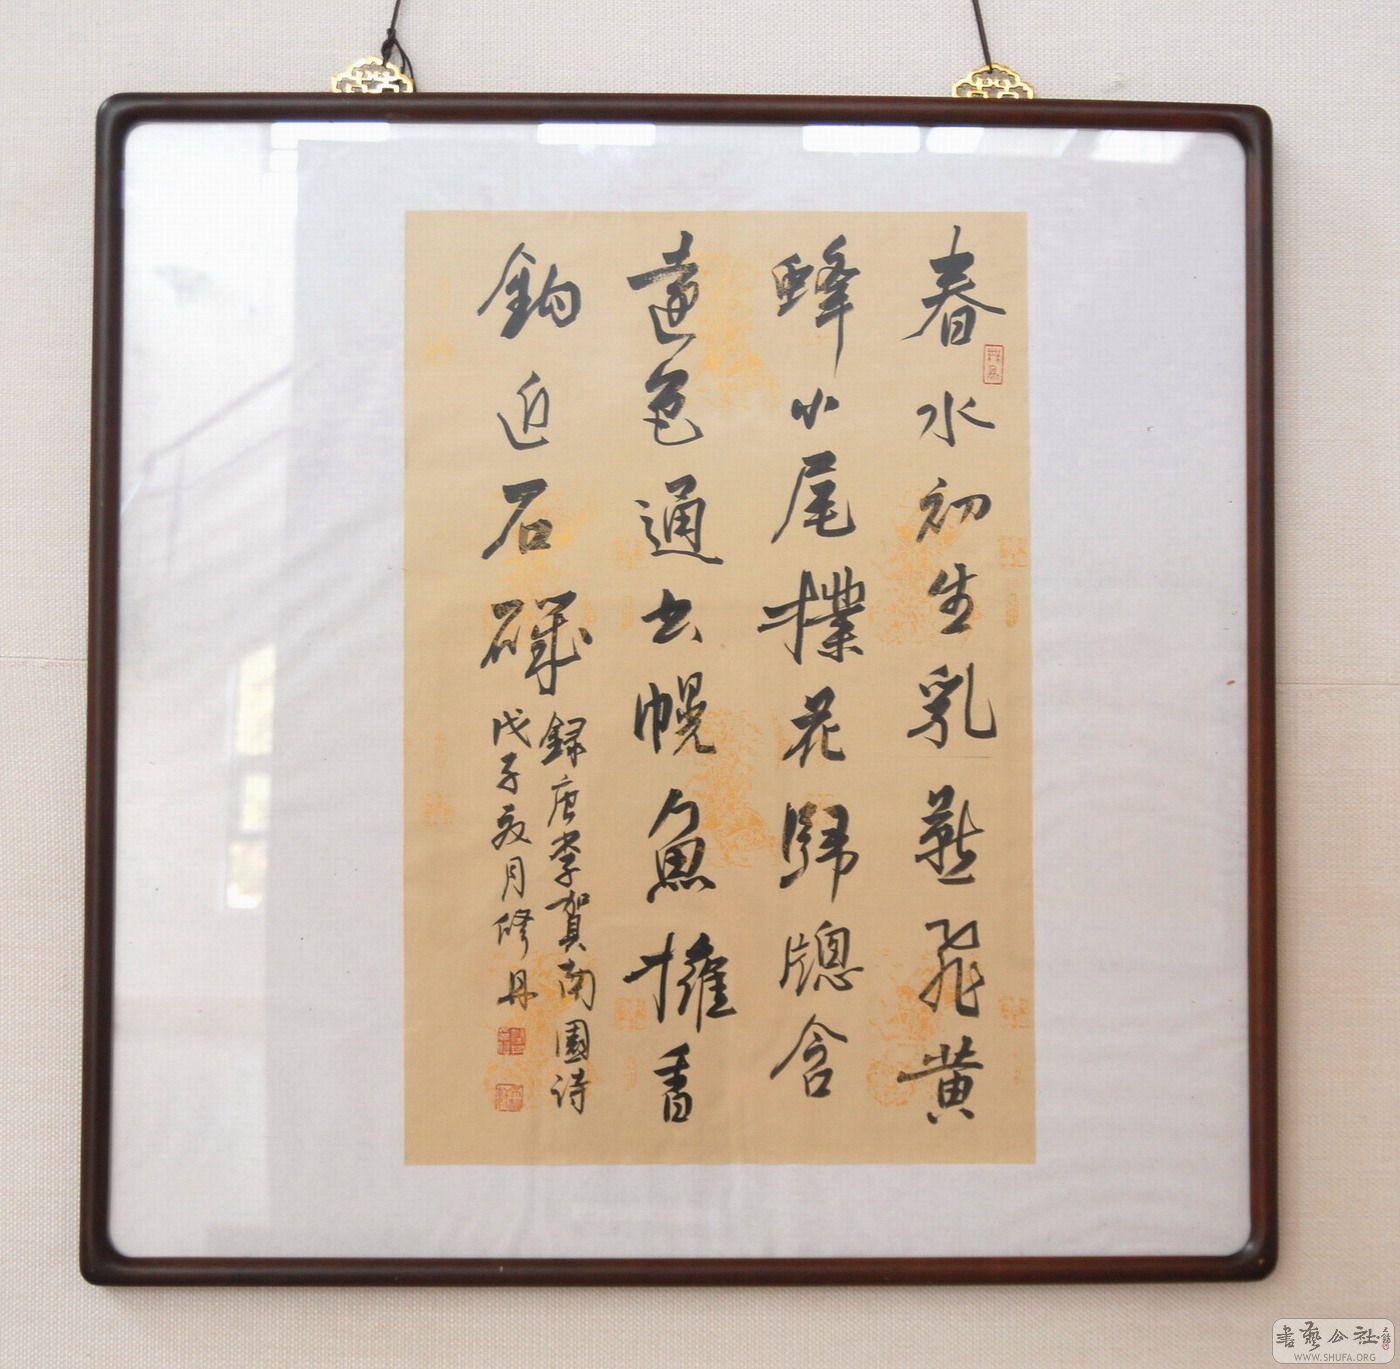 春水初生乳燕飛黄
蜂小尾撲花歸牕含
遠色通書幌魚擁香
鈎近石磯
録唐李賀南園詩
戊子夏月修丹
書藝公社
WWW.SHUFA.ORG